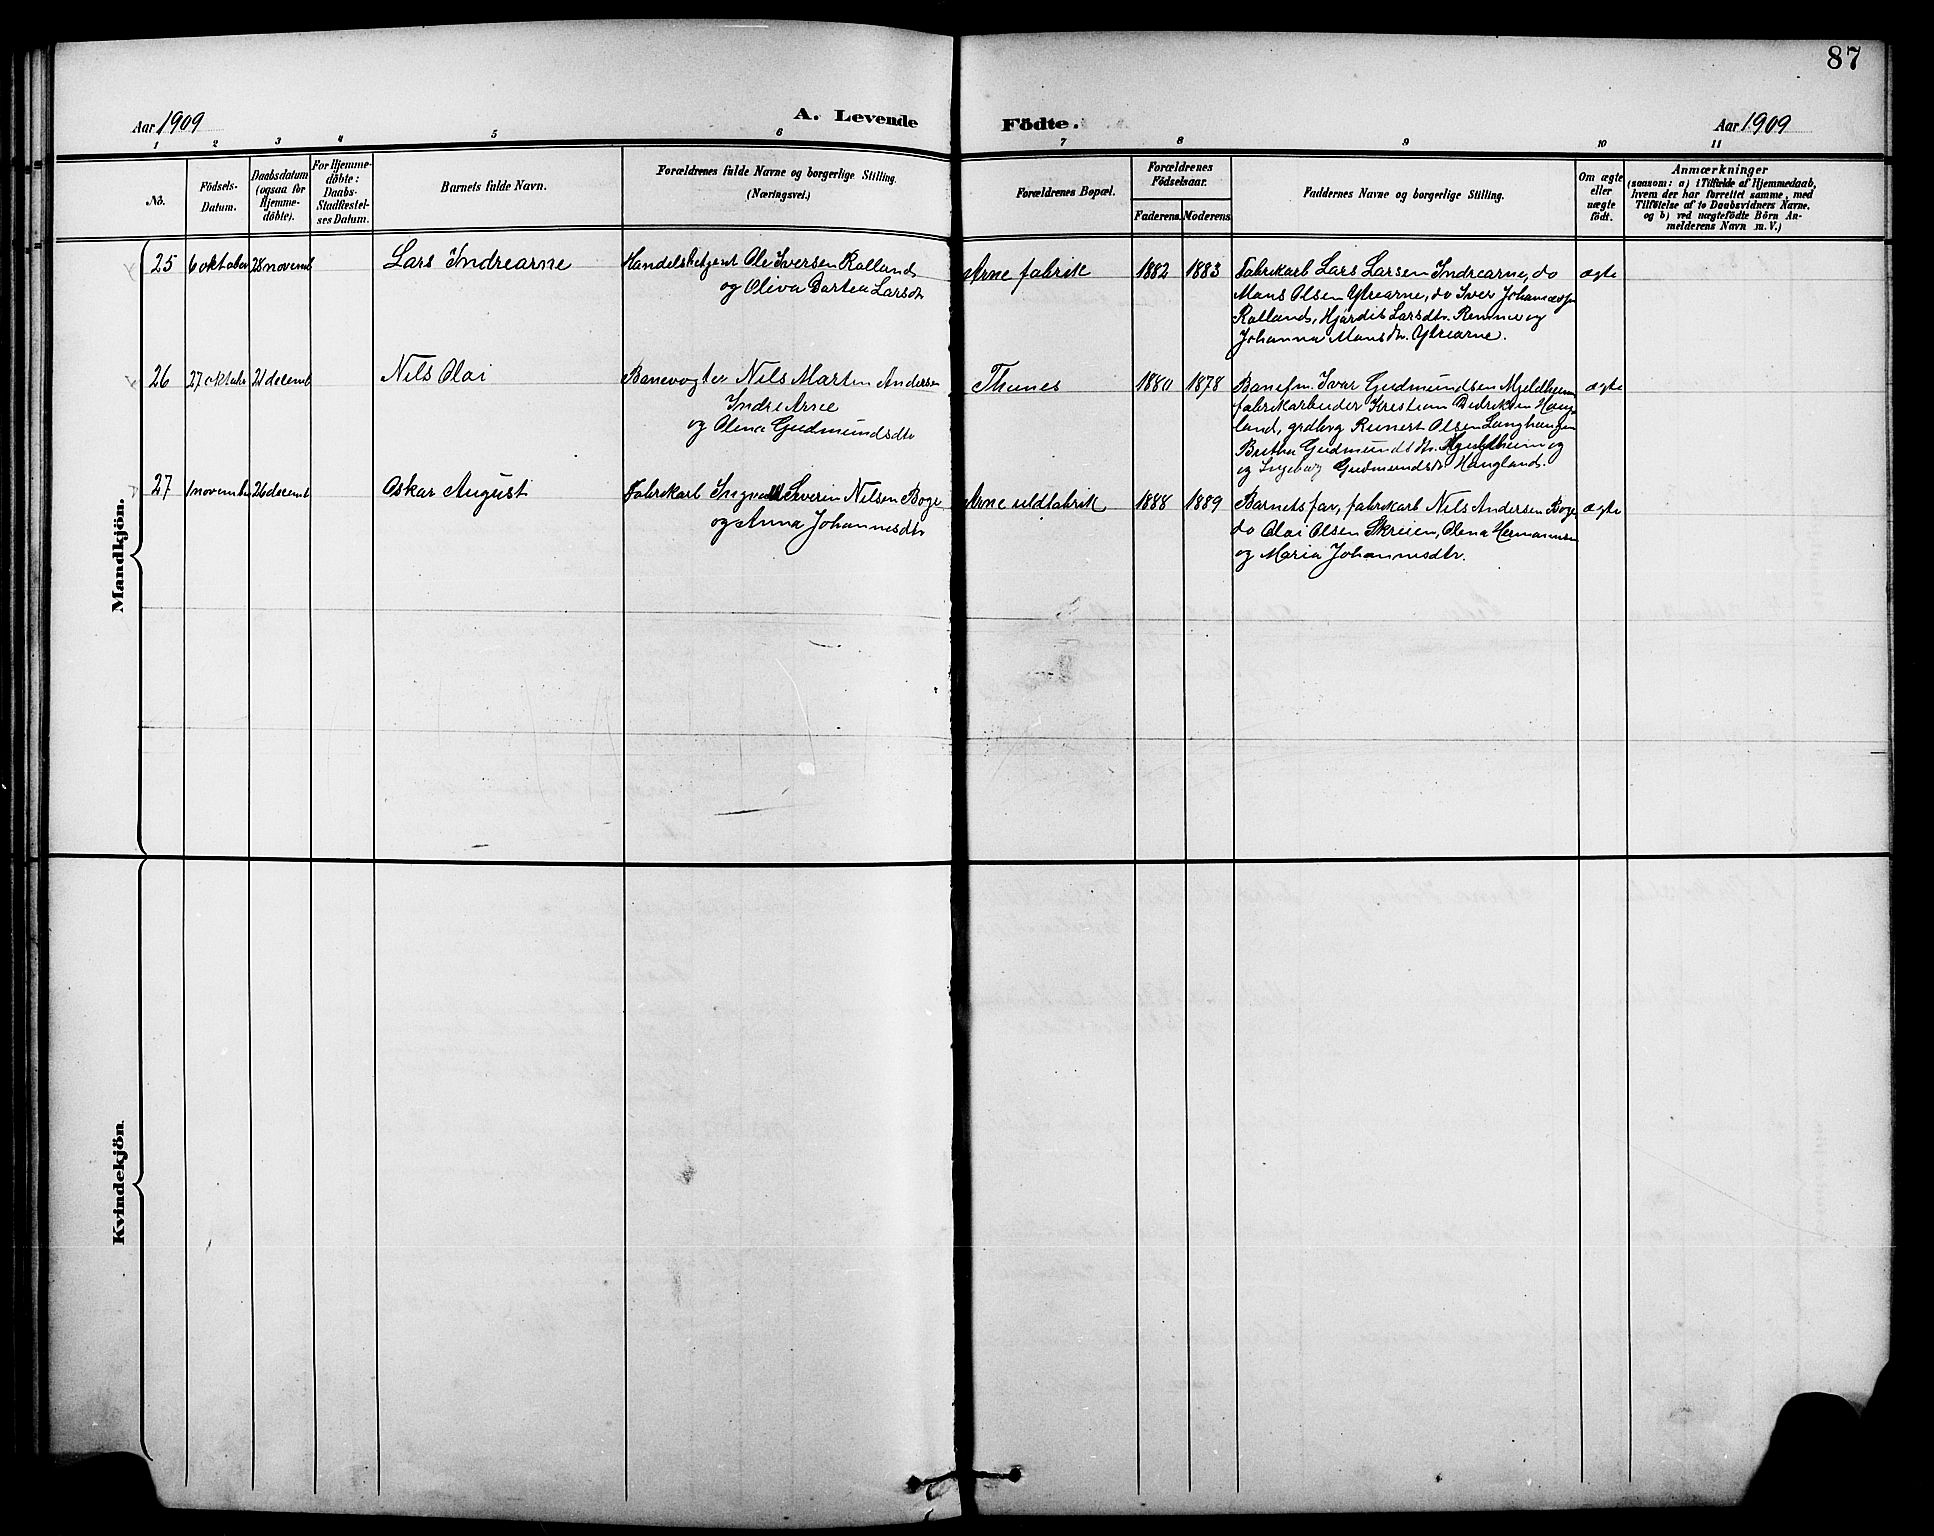 87
Aar 1909
A. Levende Födte.
Aar 1909
1 2 3 4 5 6 7 8 9 10 11
No.
Födsels-
Datum.
Daabsdatum
(ogsaa for
Hjemme-
döbte).
For Hjemme-
döbte:
Daabs-
Stadfæstel-
ses Datum.
Barnets fulde Navn.
Forældrenes fulde Navne og borgerlige Stilling.
(Næringsvei.)
Forældrenes Bopæl.
Forældrenes
Födselsaar.
Faderens. Moderens.
Faddernes Navne og borgerlige Stilling.
Om ægte
eller
uægte
født.
Anmærkninger
(saasom: a) i Tilfælde af Hjemmedaab,
hvem der har forrettet samme, med
Tilföielse af to Daabsvidners Navne.
og b) ved uægtefödte Börn An-
melderens Navn m. V.)
Mandkjön.
25 6 oktober 28 novemb Lars Indrearne
Handelsbetjent Ole Iversen Rolland
og Oliva Dortea Larsdtr
Arne fabrik 1882 1883
Fabrikarb Lars Larsen Indrearne, do
Mans Olsen Ytrearne, do Iver
Rolland, Hjørdis Larsdtr. og
Johanna Mansdtr. Ytrearne.
ægte
26 27 oktobr 21 decemb Nils Olai
Banevogter Nils Marten Andersen
Indre Arne
og Olena Gudmundsdtr
Thunes 1880 1878
Banefm. Ivar Gudmundsen Mjeldheim
fabrikarbeider Kristian Didriksen Haug-
land, grdbrg Reinert Olsen Langhaugen
Britha Gudmundsdtr. Mjeldheim og
og Ingeborg Gudmundsdtr Haugland.
ægte
27 1 november 26 decemb Oskar August
Fabrikarb Ingvald Severin Nilsen Boge
og Anna Johannesdtr
Arne uldfabrik 1888 1889
Barnets far, fabrikarb Nils Andersen Boge,
do Olai Olsen Skreien, Olena Hermansen
og Maria Johannesdtr.
ægte
Kvindekjön.